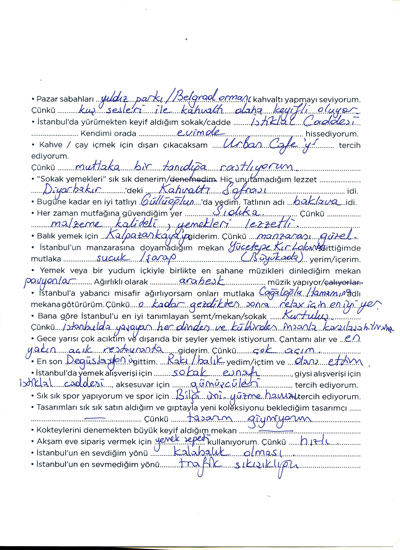 • Pazar sabahları yıldız parkı/Belgrad ormanı kahvaltı yapmayı seviyorum.
Çünkü kuş sesleri ile kahvaltı daha keyifli oluyor
• İstanbul'da yürümekten keyif aldığım sokak/cadde İstiklal Caddesi
Kendimi orada evimde hissediyorum.
• Kahve / çay içmek için dışarı çıkacaksam Urban Cafe'yi tercih
ediyorum.
Çünkü mutlaka bir tanıdığa rastlıyorum
• "Sokak yemekleri" sık sık denerim/denemedim. Hiç unutamadığım lezzet
Diyarbakır 'deki Kahvaltı Sofrası idi.
• Bugüne kadar en iyi tatlıyı Güllüoğlun 'da yedim. Tatlının adı baklava idi.
• Her zaman mutfağına güvendiğim yer Sıdıka. Çünkü
malzeme kaliteli yemekleri lezzetli.
• Balık yemek için Kalpazankaya giderim. Çünkü manzarası güzel.
• İstanbul'un manzarasına doyamadığım mekan Yücetepe Kır Lokantası gittiğimde
mutlaka sucuk / şarap (Büyükada) yerim/içerim.
• Yemek veya bir yudum içkiyle birlikte en şahane müzikleri dinlediğim mekan
pavyonlar Ağırlıklı olarak arabesk müzik yapıyor/çalıyorlar.
• İstanbul'a yabancı misafir ağırlıyorsam onları mutlaka Cağaloğlu Hamamı adlı
mekana götürürüm. Çünkü o kadar gezdikten sonra relax için en iyi yer
• Bana göre İstanbul'u en iyi tanımlayan semt/mekan/sokak Kurtuluş
Çünkü İstanbulda yaşayan her dinden ve kültürden insanla karşılaşabilirsiniz
• Gece yarısı çok acıktım ve dışarıda bir şeyler yemek istiyorum. Çantamı alır ve en
yakın açık restauranta giderim. Çünkü çok açım.
• En son Değüstasyon gittim. Rakı/balık yedim/içtim ve dans ettim
• İstanbul'da yemek alışverişi için sokak esnafı giysi alışverişi için
İstiklal caddesi, aksesuvar için gümüşçüleri tercih ediyorum.
• Sık sık spor yapıyorum ve spor için Bilgi üni. yüzme havuzu tercih ediyorum.
• Tasarımları sık sık satın aldığım ve gıptayla yeni koleksiyonu beklediğim tasarımcı
Çünkü tasarım giymiyorum
• Kokteylerini denemekten büyük keyif aldığım mekan
• Akşam eve sipariş vermek için yemek sepeti kullanıyorum. Çünkü hızlı.
• İstanbul'un en sevdiğim yönü kalabalık olması.
• İstanbul'un en sevmediğim yönü trafik sıkışıklığı